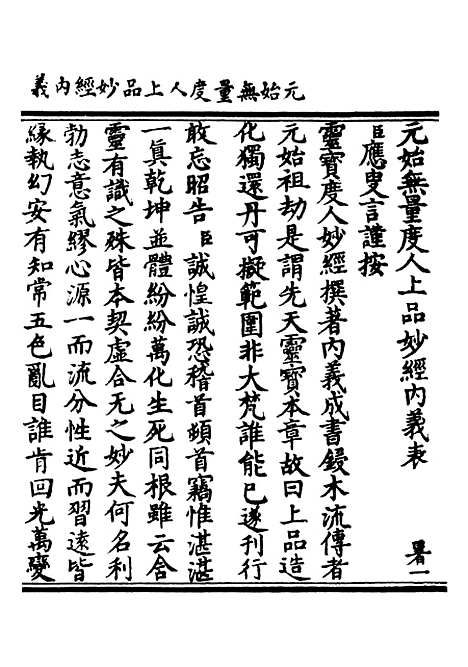 元始無量度人上品妙經內義
元始無量度人上品妙經內義表 署一
臣應叟言謹按
靈寶度人妙經撰著內義成書鋟木流傳者
元始祖劫是謂先天靈寶本章故曰上品造
化獨還丹可擬範圍非大梵誰能已遂刊行
敢忘昭告臣誠惶誠恐稽首頓首竊惟湛湛
一真乾坤並體紛紛萬化生死同根雖云含
靈有識之殊皆本契虛合无之妙夫何名利
勃志意氣繆心源一而流分性近而習遠皆
緣執幻安有知常五色亂目誰肯回光萬變